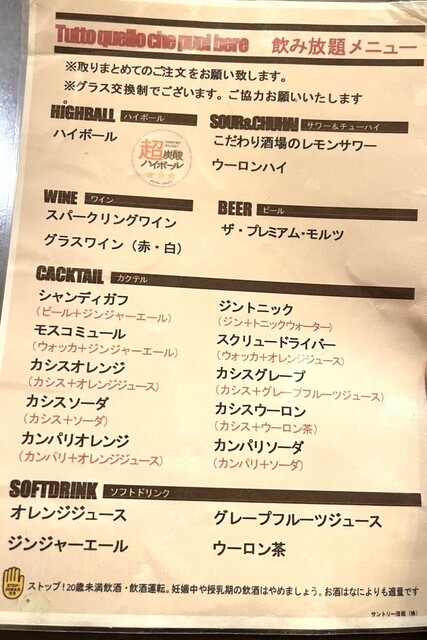 Tutto quello che puoi bere 飲み放題メニュー
※取りまとめてのご注文をお願い致します。
※グラス交換制でございます。ご協力お願いいたします
HIGHBALL ハイボール
ハイボール
超炭酸
ハイボール
SOUR&CHUHAI サワー&チューハイ
こだわり酒場のレモンサワー
ウーロンハイ
WINE ワイン
スパークリングワイン
グラスワイン（赤・白）
BEER ビール
ザ・プレミアム・モルツ
CACKTAIL カクテル
シャンディガフ
（ビール＋ジンジャーエール）
モスコミュール
（ウォッカ＋ジンジャーエール）
カシスオレンジ
（カシス＋オレンジジュース）
カシスソーダ
（カシス＋ソーダ）
カンパリオレンジ
（カンパリ＋オレンジジュース）
ジントニック
（ジン＋トニックウォーター）
スクリュードライバー
（ウォッカ＋オレンジジュース）
カシスグレープ
（カシス＋グレープフルーツジュース）
カシスウーロン
（カシス＋ウーロン茶）
カンパリソーダ
（カンパリ＋ソーダ）
SOFTDRINK ソフトドリンク
オレンジジュース
ジンジャーエール
グレープフルーツジュース
ウーロン茶
ストップ！20歳未満飲酒・飲酒運転。妊娠中や授乳期の飲酒はやめましょう。お酒はなによりも適量です
サントリー酒類（株）